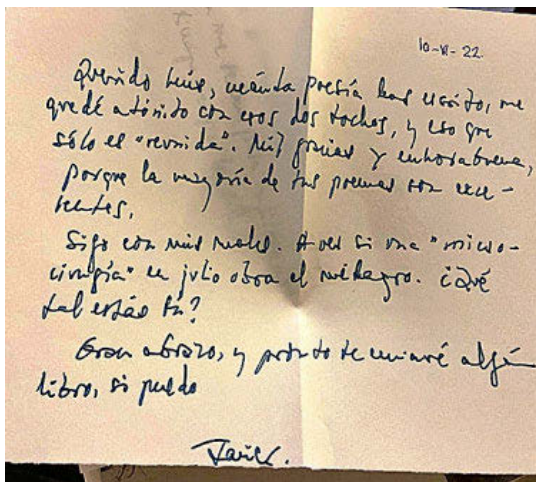 10-VI-22.
Querido Luis, cuánta poesía has escrito, me
quedé atónito con esos dos tochos, y eso que
sólo es "reunida". Mil gracias y enhorabuena,
porque la mayoría de tus poemas son exce-
lentes.
Sigo con mis males. A ver si una "micro-
cirugía" en julio obra el milagro. ¿Qué
tal estás tú?
Gran abrazo, y pronto te enviaré algún
libro, si puedo
Javier.